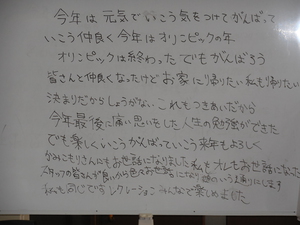 今年は元気でいこう気をつけてがんばって
いこう仲良く今年はオリンピックの年
オリンピックは終わったでもがんばろう
皆さんと仲良くなったけどお家に帰りたい私も帰りたい
決まりだからしょうがない これもつきあいだから
今年最後に痛い思いをした人生の勉強ができた
でも楽しくいこうがんばっていこう来年もよろしく
かみこもりさんにもお世話になりました私もオレもお世話になった
スタッフの皆さんが良いから色々お世話になり のいう通りにします
私も同じです レクレーションみんなで楽しめました